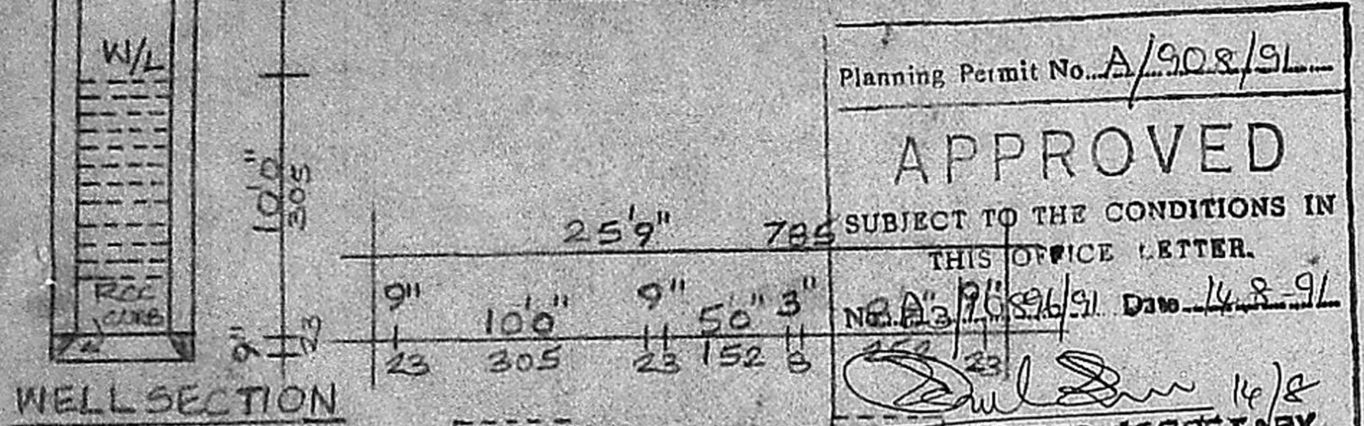 W/L
10'0"
305
RCC
CURB
9"
23
WELL SECTION
25'9" 785
9" 10'0" 9" 5'0" 3"
23 305 23 152 8 252 23
Planning Permit No. A/908/91
APPROVED
SUBJECT TO THE CONDITIONS IN
THIS OFFICE LETTER.
Date 14.8.91
14/8